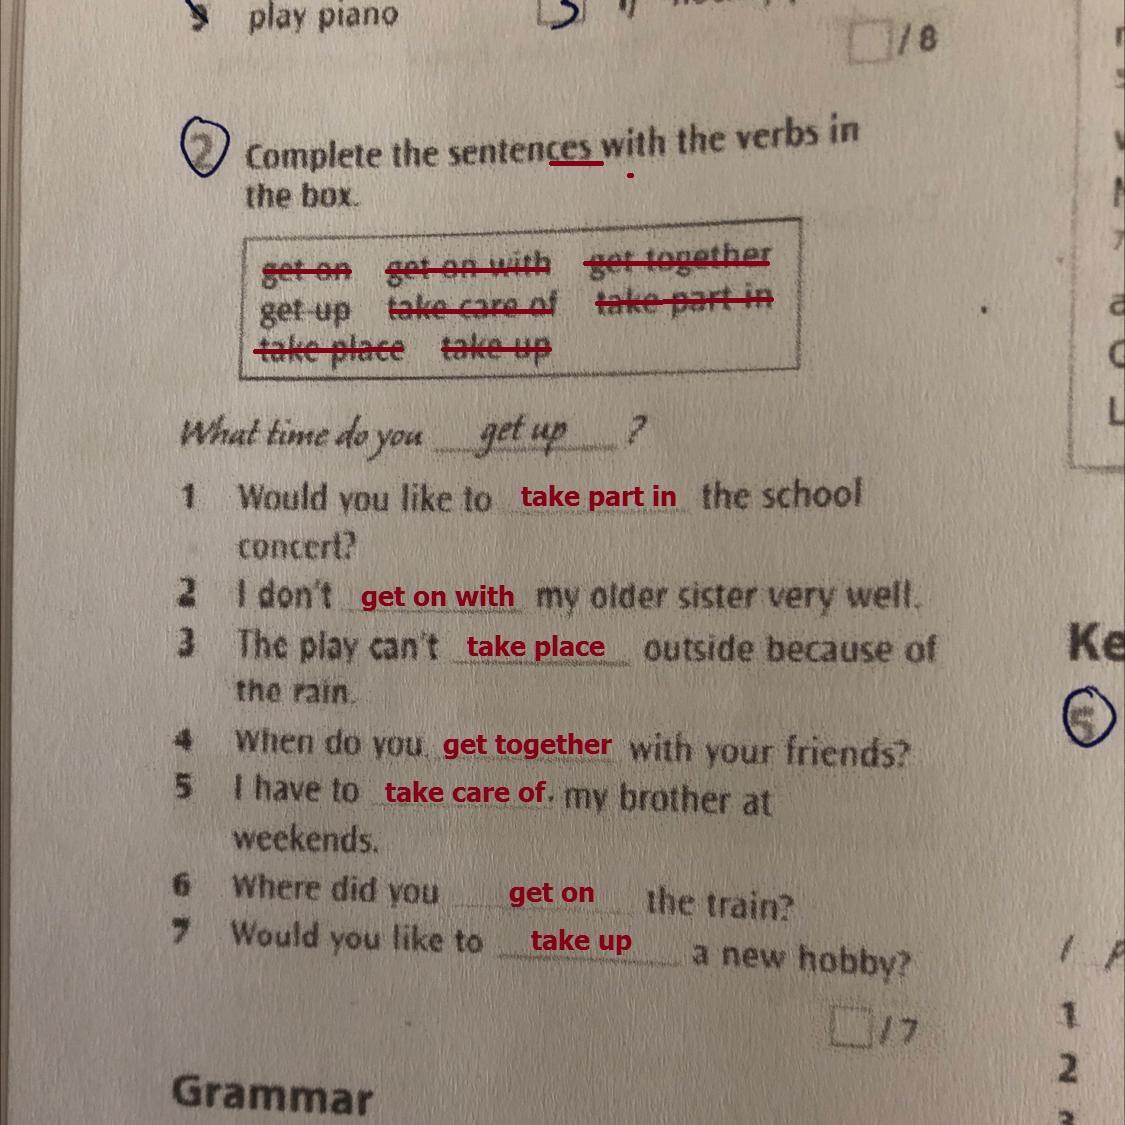 play piano
/ 8
2 Complete the sentences with the verbs in
the box.
get on get on with get together
get up take care of take part in
take place take up
What time do you get up ?
1 Would you like to take part in the school
concert?
2 I don't get on with my older sister very well.
3 The play can't take place outside because of
the rain.
4 When do you get together with your friends?
5 I have to take care of my brother at
weekends.
6 Where did you get on the train?
7 Would you like to take up a new hobby?
/ 7
Grammar
Ke
5
1
2
3